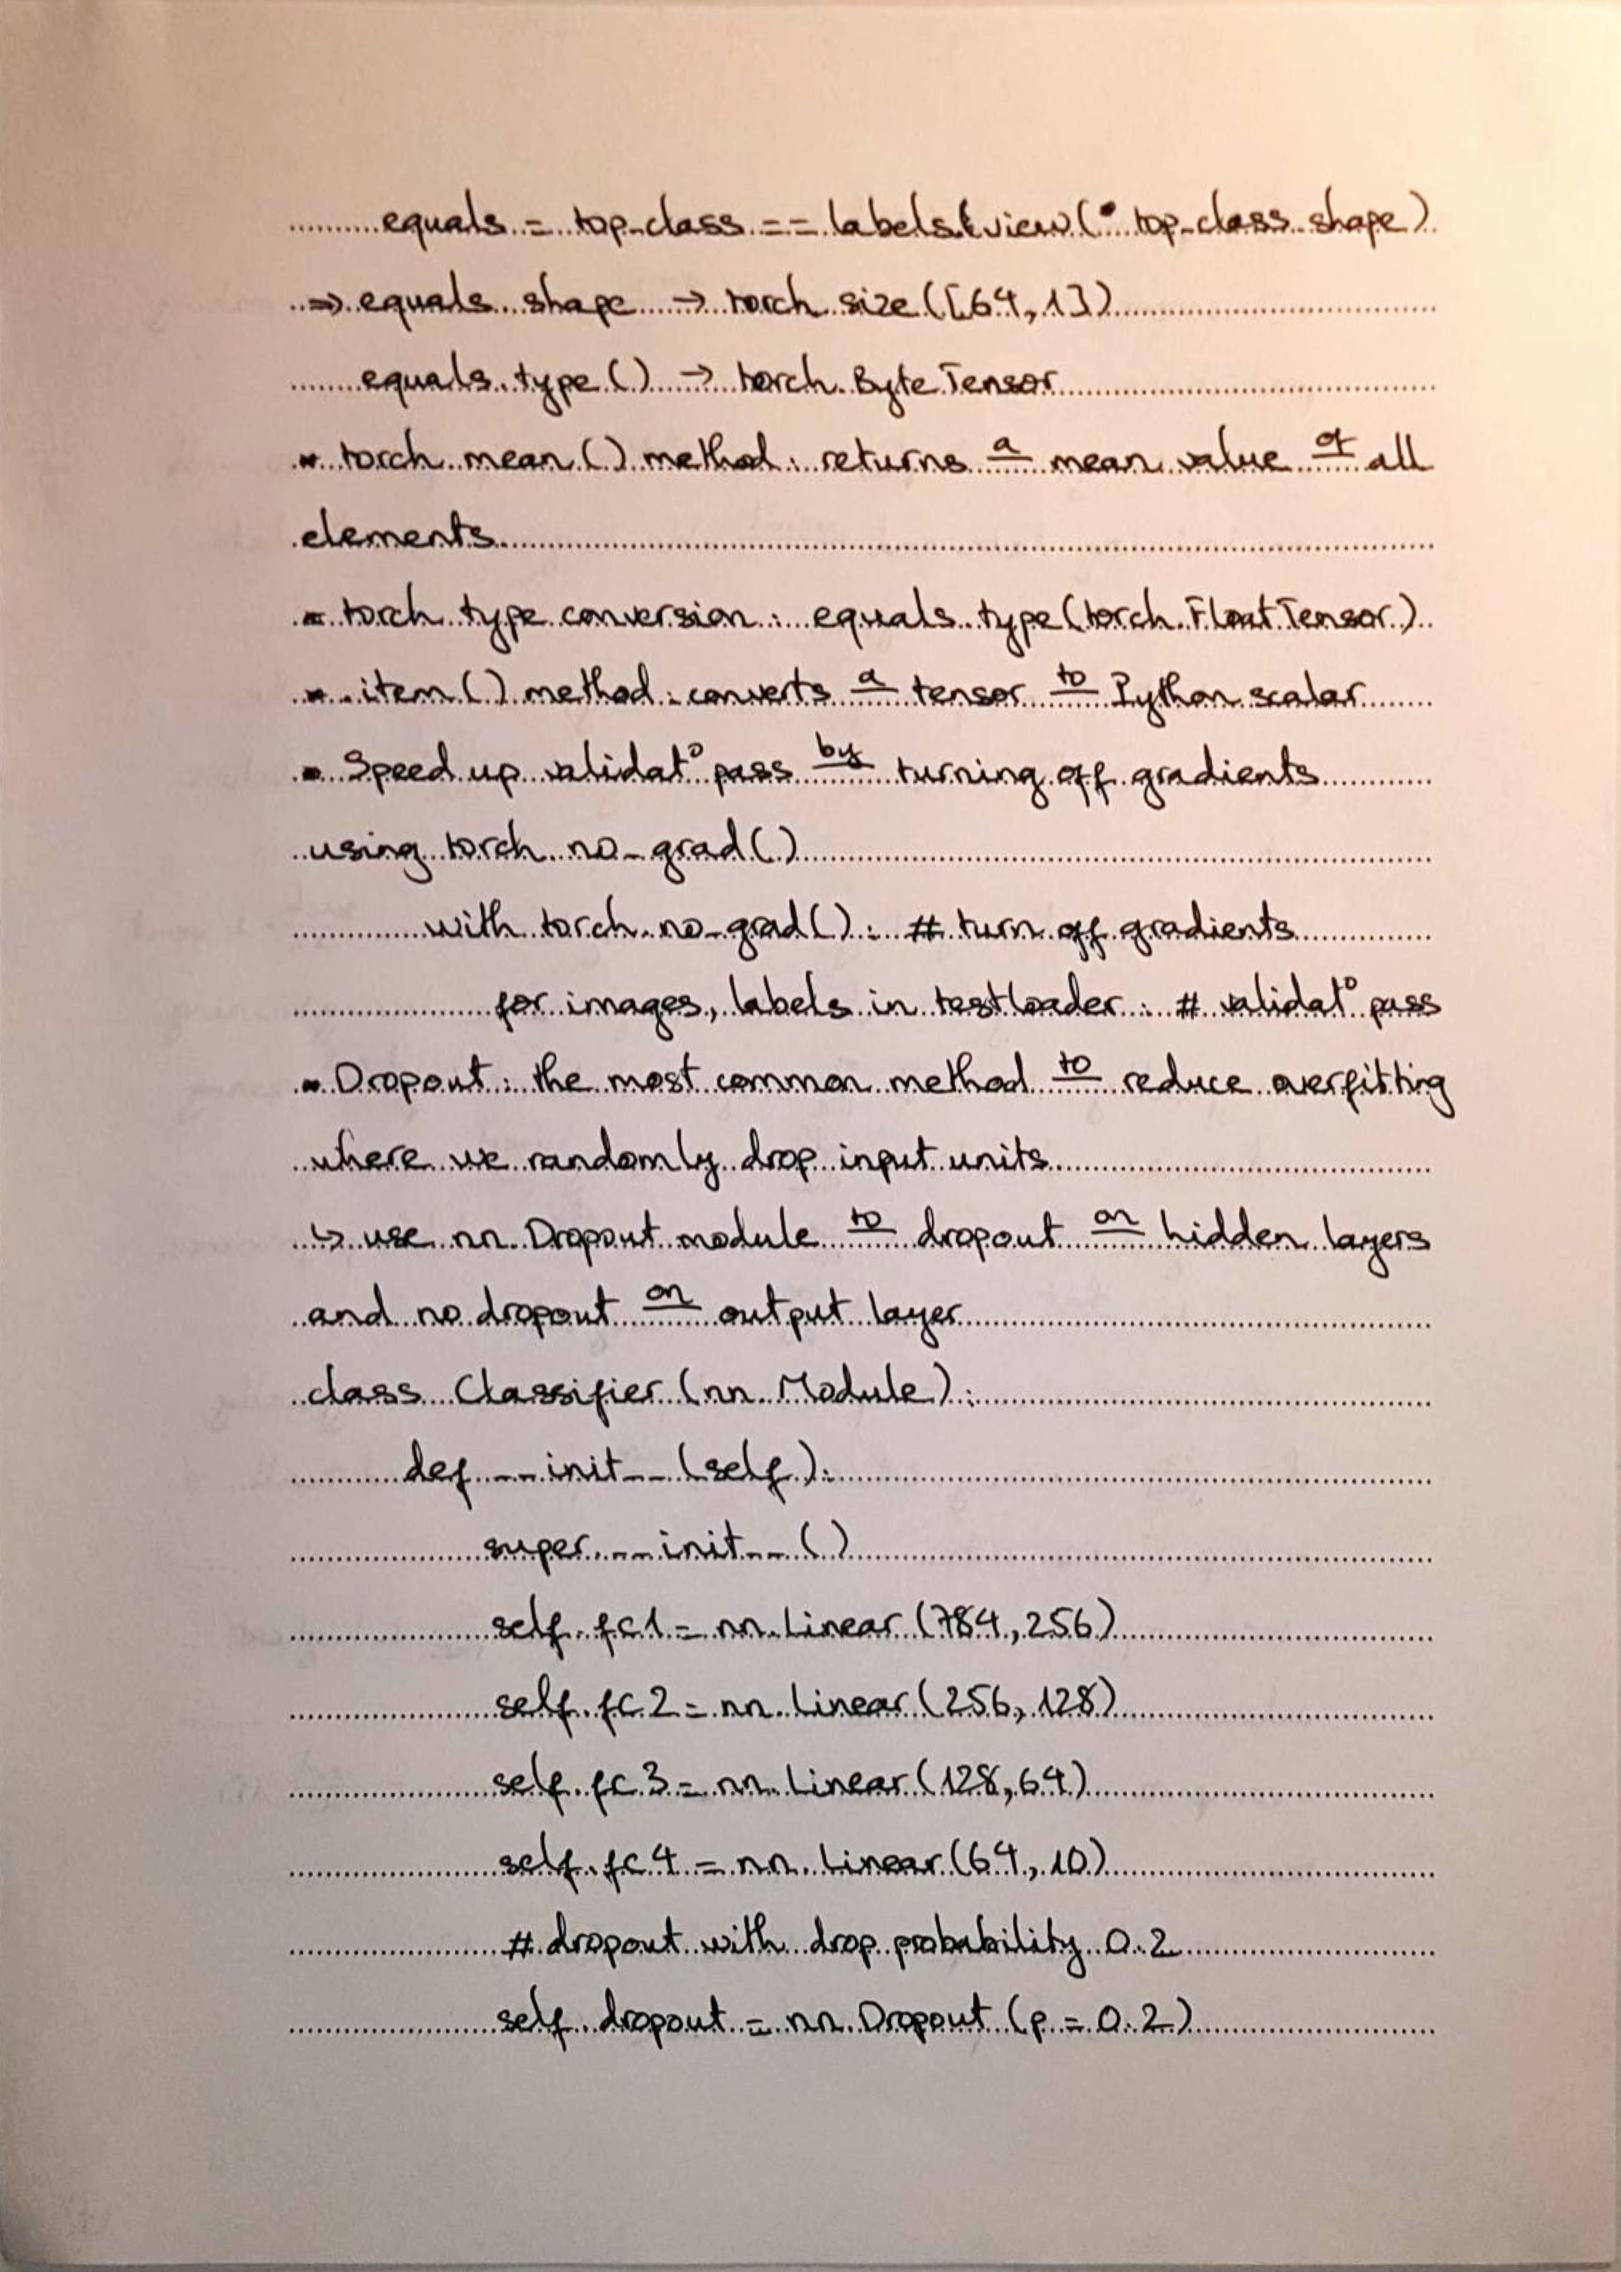 equals = top_class == labels.view(* top_class.shape)
⇒ equals.shape → torch.size([64,1])
equals.type() → torch.ByteTensor
* torch.mean() method: returns a mean value of all
elements
* torch type conversion: equals.type(torch.FloatTensor)
* .item() method: converts a tensor to Python scalar
* Speed up validat° pass by turning off gradients
using torch.no_grad()
with torch.no_grad(): # turn off gradients
for images, labels in testloader: # validat° pass
* Dropout: the most common method to reduce overfitting
where we randomly drop input units
↳ use nn.Dropout module to dropout on hidden layers
and no dropout on output layer
class Classifier(nn.Module):
def __init__(self):
super.__init__()
self.fc1 = nn.Linear(784,256)
self.fc2 = nn.Linear(256,128)
self.fc3 = nn.Linear(128,64)
self.fc4 = nn.Linear(64,10)
# dropout with drop probability 0.2
self.dropout = nn.Dropout(p = 0.2)